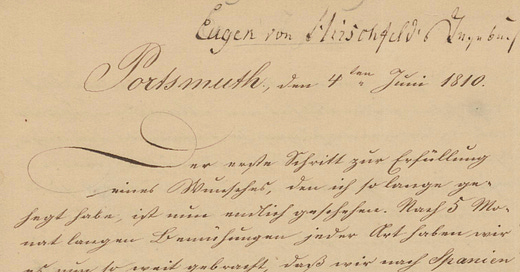 Eugen von Hirschfeld's Tagebuch
Portsmuth, den 4ten Juni 1810.
Der erste Schritt zur Erfüllung
eines Wunsches, den ich so lange ge-
hegt habe, ist nun endlich geschehen. Nach 5 Mo-
nat langen Bemühungen jeder Art haben wir
es nun so weit gebracht, daß wir nach Spanien